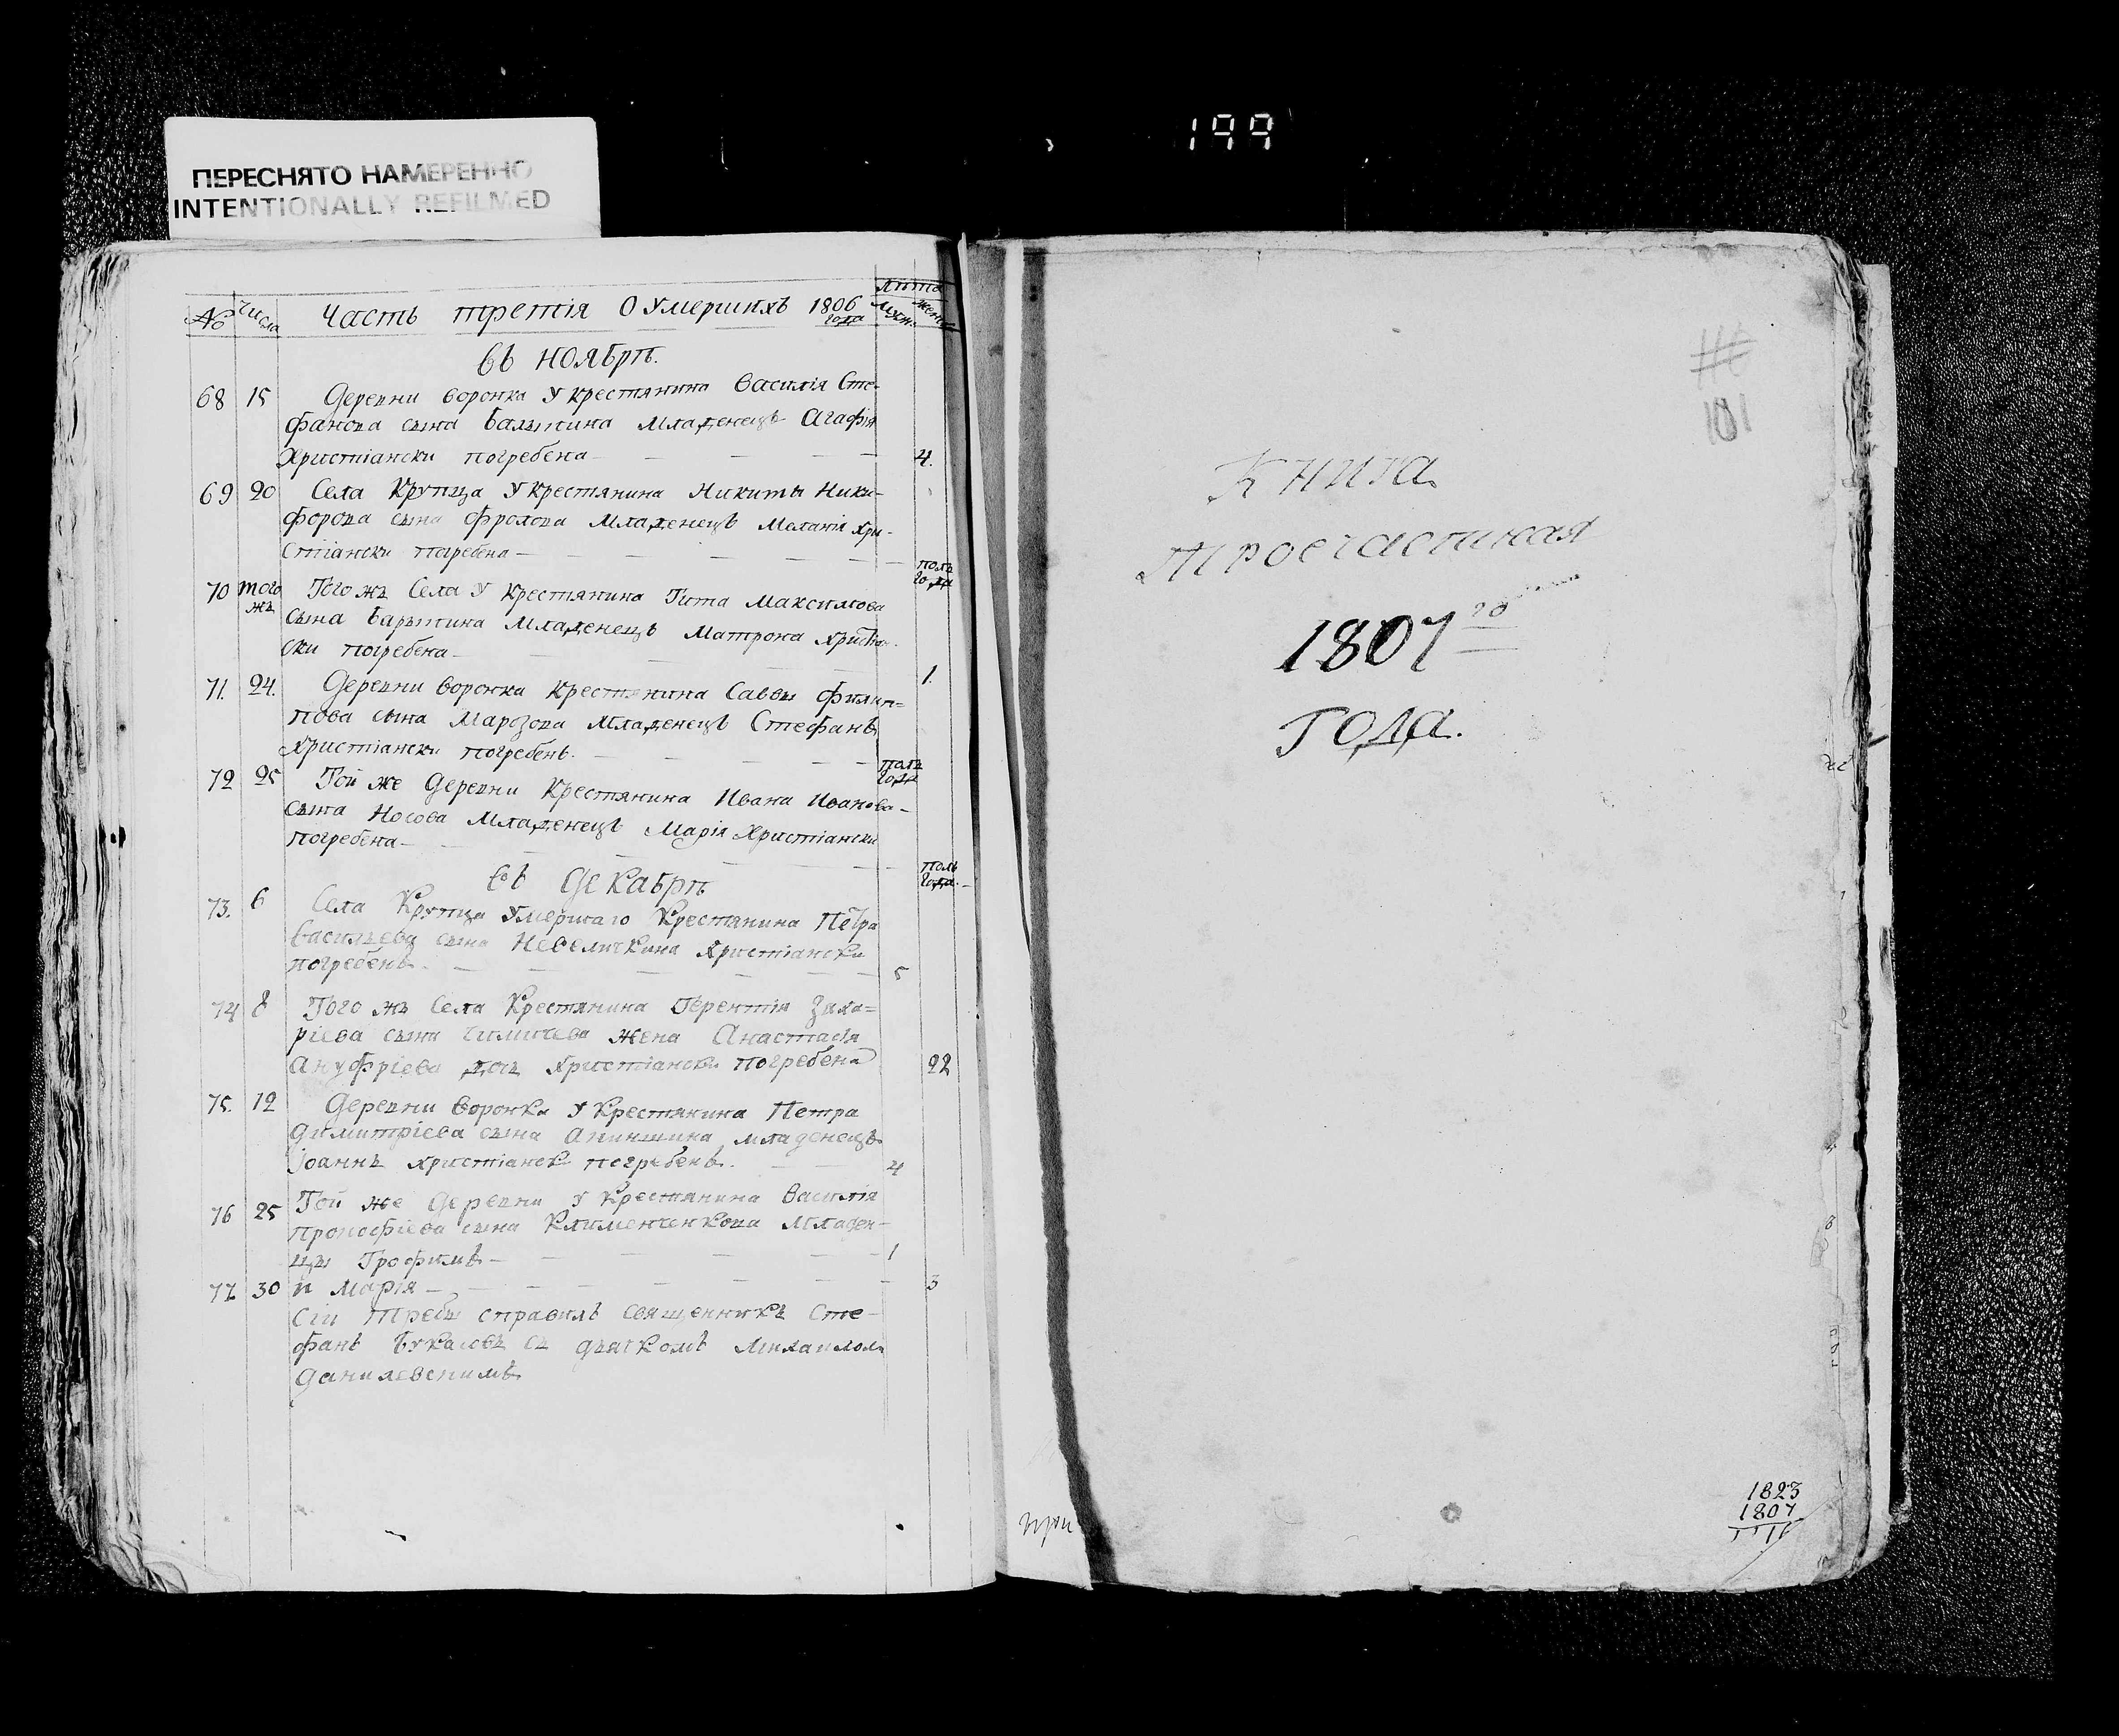 199
ПЕРЕСНЯТО НАМЕРЕННО
INTENTIONALLY REFILMED
№ Числа Часть третія О умершихъ 1806 года лѣта муж. женс
въ ноябрѣ.
68 15 Деревни воронка у крестянина Василія Сте-
фанова сына Балыкина младенецъ Агафія
Христіански погребена 4.
69 20 Села Крупца у крестянина Никиты Ники-
форова сына Фролова младенецъ Меланія хри-
стіански погребена полъ года
70 того жъ Того жъ Села у крестянина Тита Максимова
сына младенецъ Матрона христіан-
ски погребена 1.
71. 24. Деревни воронка крестянина Саввы Филип=
пова сына Марозова младенецъ Стефанъ
христіански погребенъ. полъ года
72 25 Той же деревни крестянина Ивана Иванова
сына Носова младенецъ Марія Христіански
погребена полъ года.
въ декабрѣ
73. 6 Села Крупца умершаго крестянина Петра
васильева сына Невеличкина христіански
погребенъ. 5
74 8 Того жъ села крестянина Терентія Заха=
ріева сына жена Анастасія
Ануфріева дочь христіански погребена 22
75. 12 Деревни воронка у крестянина Петра
Димитріева сына младенецъ
Іоаннъ христіански погребенъ. 4
76 25 Той же деревни у крестянина Василія
Прокофіева сына Клименченкова младен-
цы Трофимъ 1
77 30 и Марія 3
Сіи требы справилъ священникъ Сте-
фанъ съ дьячкомъ Михаиломъ
Данилевскимъ
при
101
Книга
троечастная
1807го
года.
1823
1807